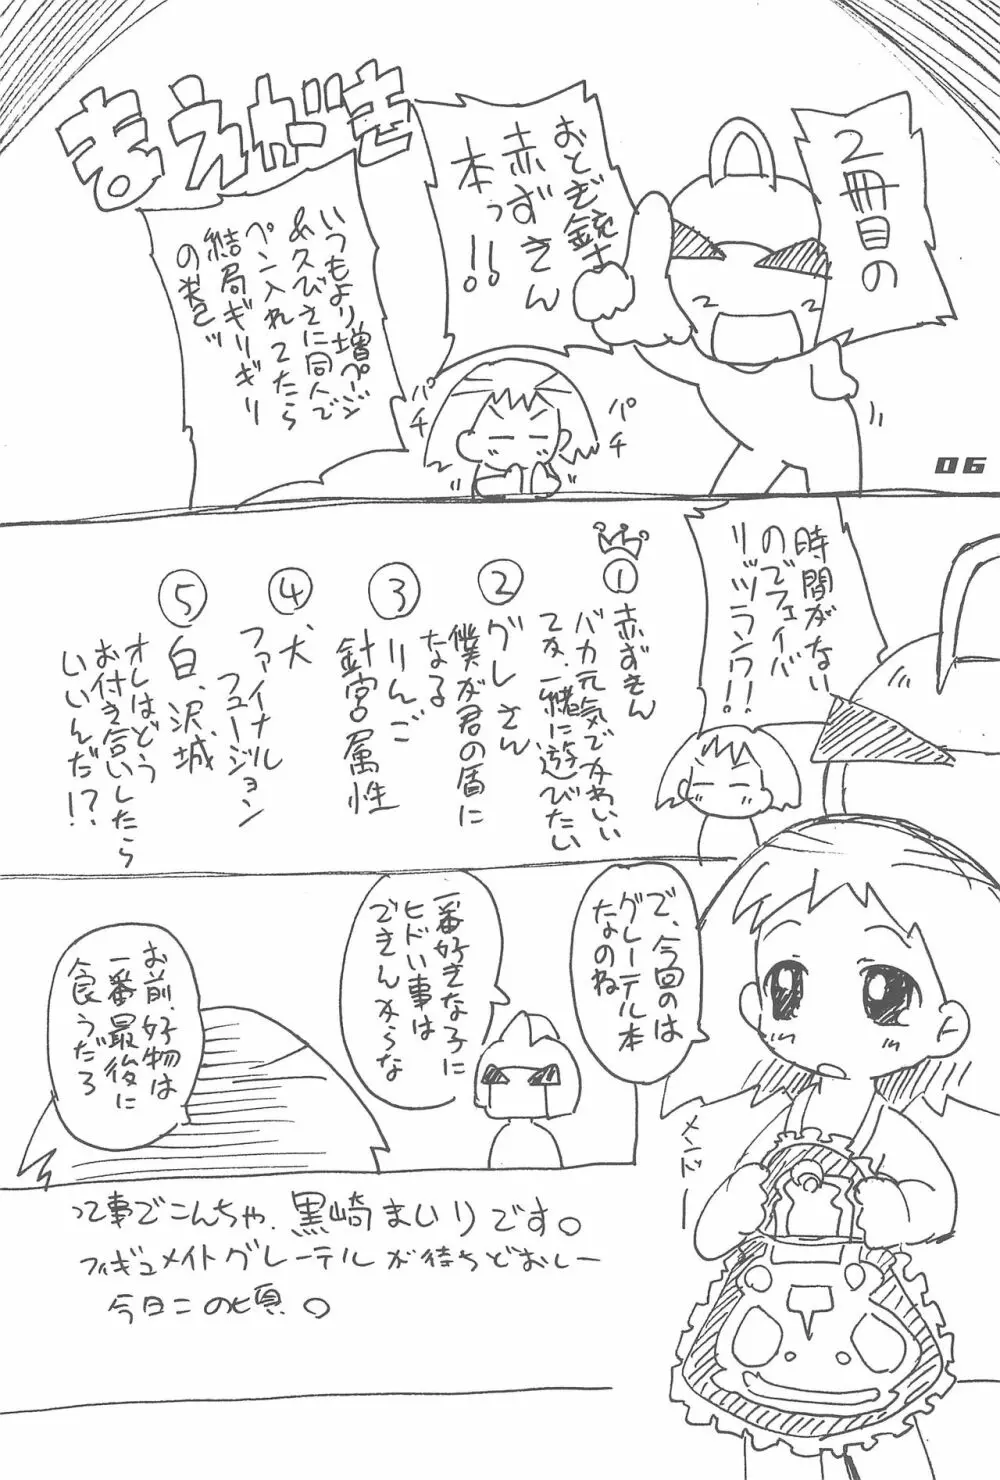 まえがき
2冊目の
おとぎ銃士
赤ずきん
本っ!!
いつもより増ページ
&久びさに同人で
ペン入れてたら
結局ギリギリ
の巻ッ
パチ
パチ
06
時間がない
のでフェイバ
リッツランク!!
①赤ずきん
バカ元気でかわいい
てか、一緒に遊びたい
②グレさん
僕が君の盾に
なる
③りんご
針宮属性
④犬
ファイナル
フュージョン
⑤白、沢城
オレはどう
お付き合いしたら
いいんだ!?
で、今回のは
グレーテル本
なのね
一番好きな子に
ヒドい事は
できんからな
お前、好物は
一番最後に
食うだろ
メンドー
って事でこんちゃ、黒崎まいりです。
フィギュメイトグレーテルが待ちどおしー
今日この頃。